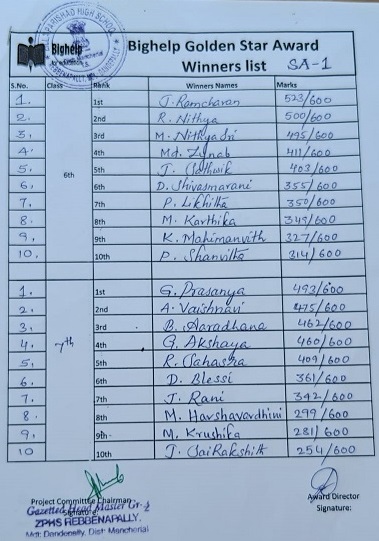 ZILLA PARISHAD HIGH SCHOOL
REBBENAPALLY
Bighelp
Bighelp Golden Star Award
Winners list SA-1
S.No. Class Rank Winners Names Marks
1. 1st J. Ramcharan 523/600
2. 2nd R. Nithya 500/600
3. 3rd M. NithyaSri 495/600
4. 4th Md. Zynab 411/600
5. 5th J. Sathwik 403/600
6th
6. 6th D. Shivasmarani 355/600
7. 7th P. Likhitha 350/600
8. 8th M. Karthika 349/600
9. 9th K. Mahimanvith 327/600
10. 10th P. Shanvitha 314/600
1. 1st G. Prasanya 493/600
2. 2nd A. Vaishnavi 475/600
3. 3rd B. Aaradhana 462/600
4. 7th 4th G. Akshaya 460/600
5. 5th R. Sahasra 409/600
6. 6th D. Blessi 361/600
7. 7th J. Rani 342/600
8. 8th M. Harshavardhini 299/600
9. 9th M. Krushika 281/600
10 10th J. SaiRakshith 254/600
Project Committee Chairman
Signature:
Gazetted Head Master Gr-2
ZPHS REBBENAPALLY.
Mdl: Dandepally, Dist: Mancherial
Award Director
Signature: